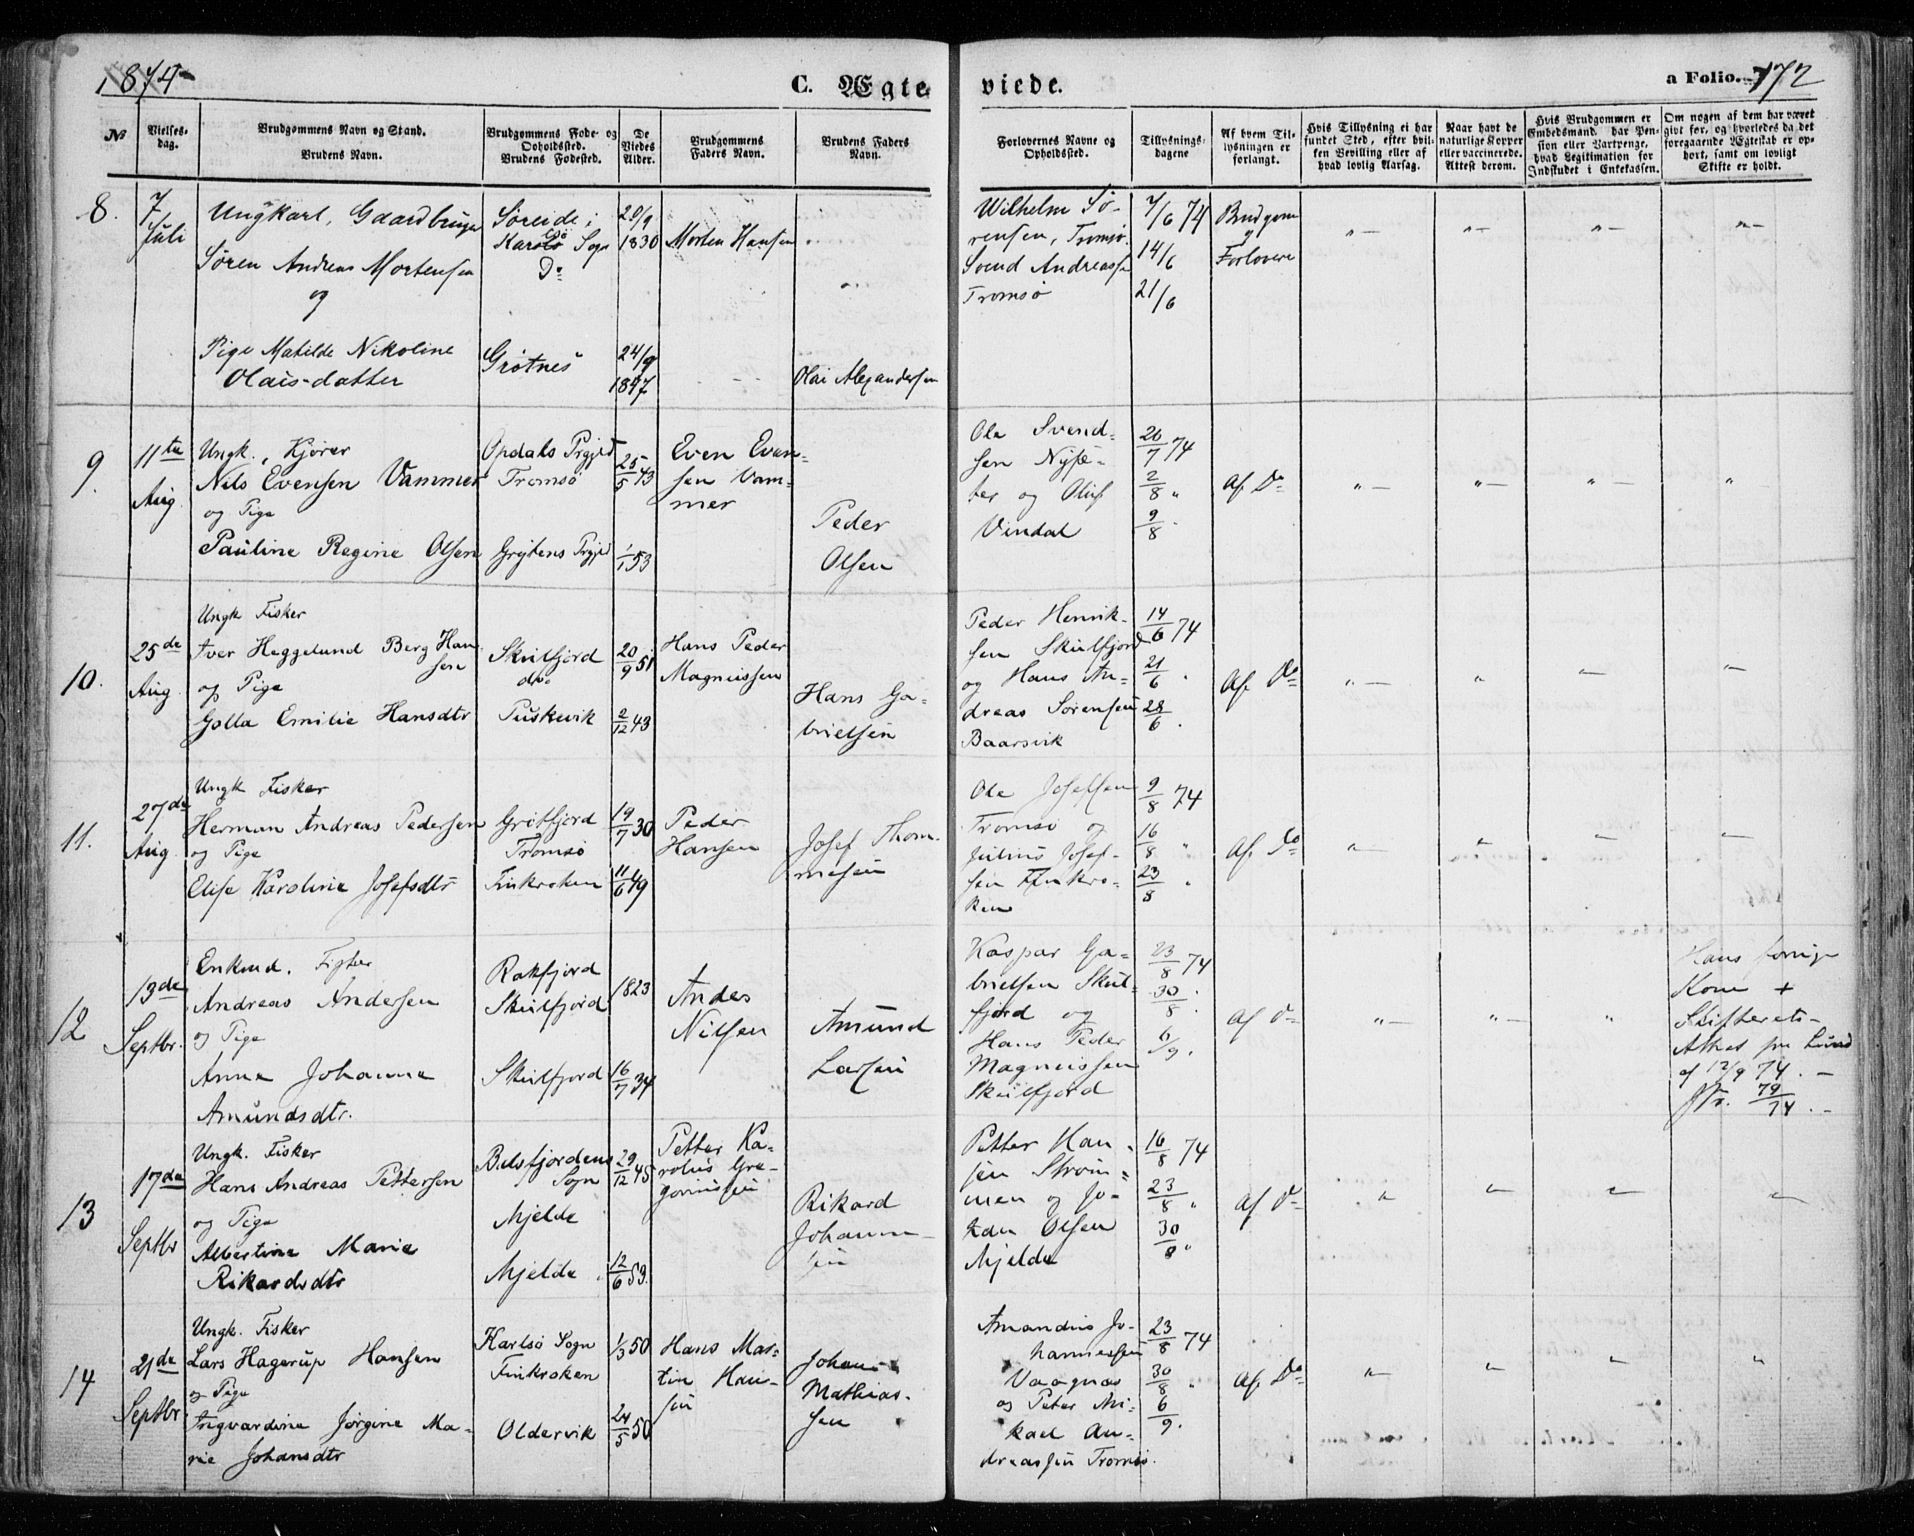 1874
C. Ægte
viede.
a Folio. 172
No
Vielses-
dag.
Brudgommens Navn og Stand.
Brudens Navn.
Brudgommens Føde- og
Opholdssted.
Brudens Fødested.
De
Viedes
Alder.
Brudgommens
Faders Navn.
Brudens Faders
Navn.
Forlovernes Navne og
Opholdssted.
Tillysnings-
dagene
Af hvem Til-
lysningen er
forlangt.
Hvis Tillysning ei har
fundet Sted, efter hvil-
ken Bevilling eller af
hvad lovlig Aarsag.
Naar havt de
naturlige Kopper
eller vaccinerede.
Attest derom.
Hvis Brudgommen er
Embedsmand, har Pen-
sion eller Vartpenge,
hvad Legitimation for
Indskudet i Enkekassen.
Om nogen af dem har været
givt før, og hvorledes da det
foregaaende Ægteskab er op-
hørt, samt om lovligt
Skifte er holdt.
8.
7
Juli
Ungkarl, Gaardbruger
Søren Andreas Mortensen
og
Pige Matilde Nikoline
Olais-datter
Karlsø Sogn
Do
Grøtnes
20/9
1830
24/9
1847
Morten Hansen
Olai Alexandersen
Wilhelm Sø-
rensen, Tromsø.
Svend Andreassen
Tromsø
7/6 74
14/6
21/6
Brudgom
og
Forlovere
9.
11te
Aug
Ungk., Kjører
Nils Evensen Vammer
og Pige
Pauline Regine Olsen
Opdals Prgjld
Tromsø
Grytens Prgjld
25/5 43
1/1 53
Even Even-
sen Vam-
mer
Peder
Olsen
Ole Svend-
sen Nysæ-
ter og Oluf
Vindal
26/7 74
2/8 "
9/8
Af Do
10.
25de
Aug
Ungk Fisker
Iver Heggelund Berg Han-
sen
og Pige
Golla Emilie Hansdtr
Skulfjord
do
Tuskevik
20/9 51
2/12 43
Hans Peder
Magnussen
Hans Ga-
brielsen
Peder Henrik-
sen Skulfjord
og Hans An-
dreas Sørensen
Baarsvik
14/6 74
21/6
28/6
Af Do
11.
27de
Aug
Ungk Fisker
Herman Andreas Pedersen
og Pige
Elise Karoline Josefsdtr
Grøtfjord
Tromsø
Finkroken
19/7 30
11/6 49
Peder
Hansen
Josef Thom-
mesen
Ole Josefsen
Tromsø og
Julius Josef-
sen Finkro-
ken
9/8 74
16/8 "
23/8 "
Af Do
12
13de
Septbr.
Enkmd. Fisker
Andreas Andersen
og Pige
Anne Johanne
Amundsdtr.
Rakfjord
Skulfjord
Skulfjord
1823
16/7 34
Andes
Nilsen
Amund
Larsen
Kaspar Ga-
brielsen Skul-
fjord og
Hans Peder
Magnussen
Skulfjord
23/8 74
30/8.
6/9.
Af Do
Hans forrige
Kone +
Skifterets-
Attest
af 12/9 74.
79/74.
13
17de
Septbr
Ungk. Fisker
Hans Andreas Pettersen
og Pige
Albertine Marie
Rikardsdtr
Balsfjordens
Sogn
Mjelde
Mjelde
29/12 45
12/6 53.
Petter Ka-
rolus Gre-
goriussen
Rikard
Johann-
sen
Petter Han-
sen Strøm-
men og Jo-
Olsen
Mjelde
16/8 74
23/8 "
30/8 "
Af Do
14
21de
Septbr.
Ungk. Fisker
Lars Hagerup Hansen
og Pige
Ingvardine Jørgine Ma-
rie Johansdtr
Karlsø Sogn
Finkroken
Oldervik
1/3 50
24/5 50
Hans Mar-
tin Han-
sen
Johan
Mathias-
sen
Amandus Jo-
hannessen
Vaagnæs
og Peter Mi-
kael An-
dreassen Tromsø.
23/8 74
30/8 "
6/9.
Af. Do